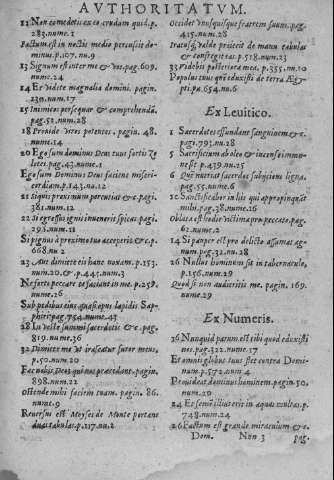 AVTHORITATVM.
12 Non comedetis ex eo crudum quid.p.
283.nume.2
Factum est in noctis medio percussit do-
minus.p.107.nu.9
13 Signum est inter me & vos.pag.609.
nume.24
14 Et videte magnalia domini. pagin.
230.num.17
15 Inimicus persequar & comprehendā.
pag.52.num.28
18 Provide viros potentes . pagin. 48.
nume.14
20 Ego sum dominus Deus tuus fortis Ze
lotes .pag.43.nume.1
Ego sum Dominus Deus faciens miseri-
cordiam.p.143.nu.12
21 Si quis proximum percutiat &c.pagi.
361.num.12
22 Si egressus ignis invenerit spicas pagi.
293.num.11
Si pignus à proximo tuo acceperis &c.p.
668.nu 2
23 Aut dimitte eis hanc noxam.p.153.
num.20.& .p.445.num.3
Ne forte peccare te faciant in me.p.259.
nume.16
Sub pedibus eius quasi opus lapidis Sap-
phiri pag.754.nume.43
28 In veste summi sacerdotis &c .pag.
819.nume.36
32 Dimitte me vt irascatur furor meus.
p.50.num.20
Fac nobis Deos qui nos præcedant. pagin.
898.num.22
Ostende mihi faciem tuam. pagin. 86.
nume.9
Reversus est Moyses de Monte portans
duas tabulas.p.217.nu.2
Occidet vnusquisque fratrem suum.pag.
415.num.28
Iratusq; valde proiecit de manu tabulas
& confregit eas.p.518.num.23
33 Videbis posteriora mea.p.355.nu.10
Populus tuus quē eduxisti de terra Ægy-
pti.pa.654.nu.6
Ex Leuitico.
1 Sacerdotes fundant sanguinem &c.
pagi.793.nu.28
5 Sacrificium absq; oleo & incenso immo-
ne est p.439.num.25
6 nutriat sacerdos subijciens ligna.
pag.55.nume.6
10 Sanctificabor in his qui appropinquāt
mihi.pag.38.nume.16
Oblata est hodie victima pro peccato.pag.
62.nume.2
14 Si pauper est pro delicto assumat ag-
num.pag.32.nu.28
16 Nullus hominum sit in tabernaculo,
p.156.num.29
Quod si non audieritis me. pagin. 169.
nume.29
Ex Numeris.
16 Nunquid parum est tibi quod eduxisti
nos.pag.322.nume.17
Et omnis globus tuus stet contra Domi-
num.p.572.num.4
Provideat dominus hominem.pagin.50.
num.20
24 Et semē illius erit in aquas multas.p.
748.num.24
26 Factum est grande miraculum &c
Dom. Non 3 pag.